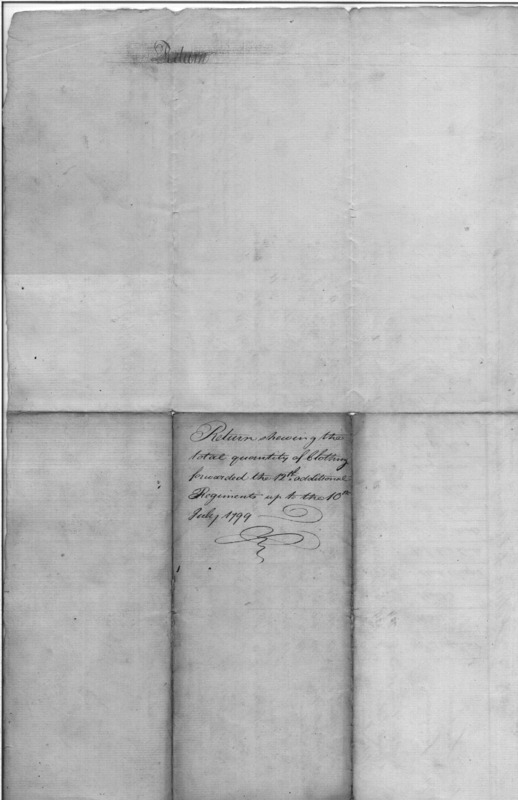 Return
Return shewing the
total quantity of Clothing
forwarded the 12 additional
Regiments up to the 10th
July 1799